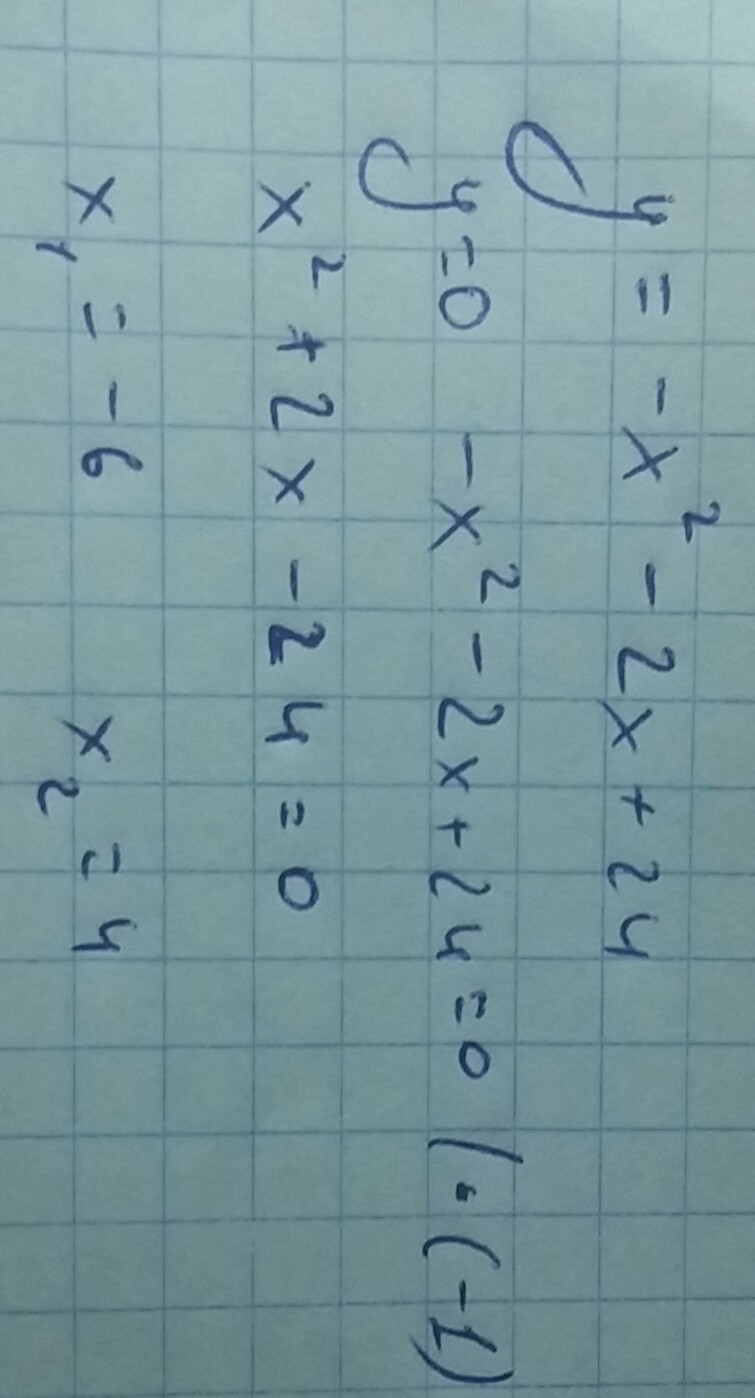 y = -x² - 2x + 24
y=0 -x² - 2x + 24 = 0 | · (-1)
x² + 2x - 24 = 0
x₁ = -6 x₂ = 4